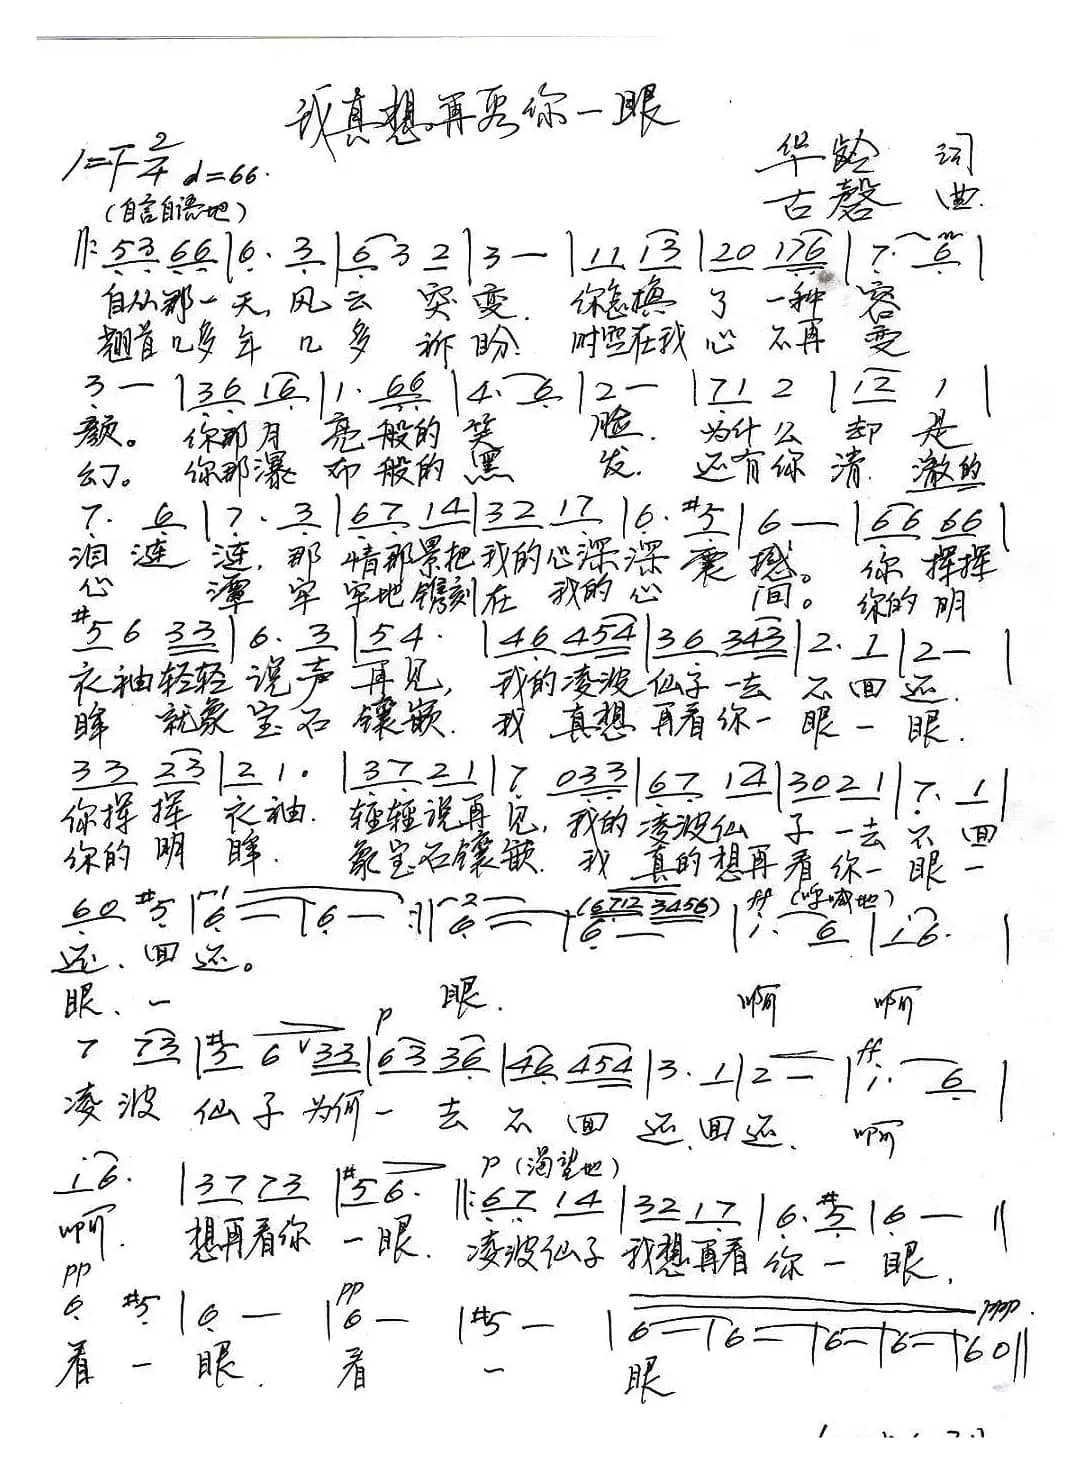 我真想再看你一眼
1=F 2/4 d=66.
华龄 词
(自言自语地)
古磬 曲.
‖: 53 66 | 6· 3 | 6 3 2 | 3 — | 11 13 | 20 176 | 7· 6 |
自从那一天,风云突变.你怎换了一种容
翘首几多年几多祈盼.时空在我心不再变
3 — | 36 16 | 1· 66 | 4· 6 | 2 — | 71 2 | 12 1 |
颜。你那月亮般的笑脸.为什么却是
幻。你那瀑布般的黑发.还有你清.澈的
7· 6 | 7· 3 | 67 14 | 32 17 | 6· #5 | 6 — | 66 66 |
泪涟涟,那情那景把我的心深深震撼。你挥挥
心潭牢牢地镌刻在我的心间。你的明
#5 6 33 | 6· 3 | 54· | 46 454 | 36 343 | 2· 1 | 2 — |
衣袖轻轻说声再见,我的凌波仙子一去不回还.
眸就象宝石镶嵌.我真想再看你一眼一眼.
33 23 | 21· | 37 21 | 7 033 | 67 14 | 30 21 | 7· 1 |
你挥挥衣袖.轻轻说再见,我的凌波仙子一去不回
你的明眸.象宝石镶嵌.我真的想再看你一眼一
60 #5 | 1 6 — | 6 — :‖ 2 6 — | (6712 3456) 6 — | ff (呼喊地) i· 6 | i6· |
还、回还。
眼、一眼.啊啊
7 73 | #5 6 V 33 | p 63 36 | 46 454 | 3· 1 | 2 — | ff i· 6 |
凌波仙子为何一去不回还.回还.啊
i6· | 37 73 | #5 6· ‖: p (渴望地) 67 14 | 32 17 | 6· #5 | 6 — ‖
啊.想再看你一眼.凌波仙子我想再看你一眼.
pp 6 #5 | 6 — | pp 6 — | #5 — | 6 — | 6 — | 6 — | 6 — | 60 ‖ pppp.
看一眼.看一眼